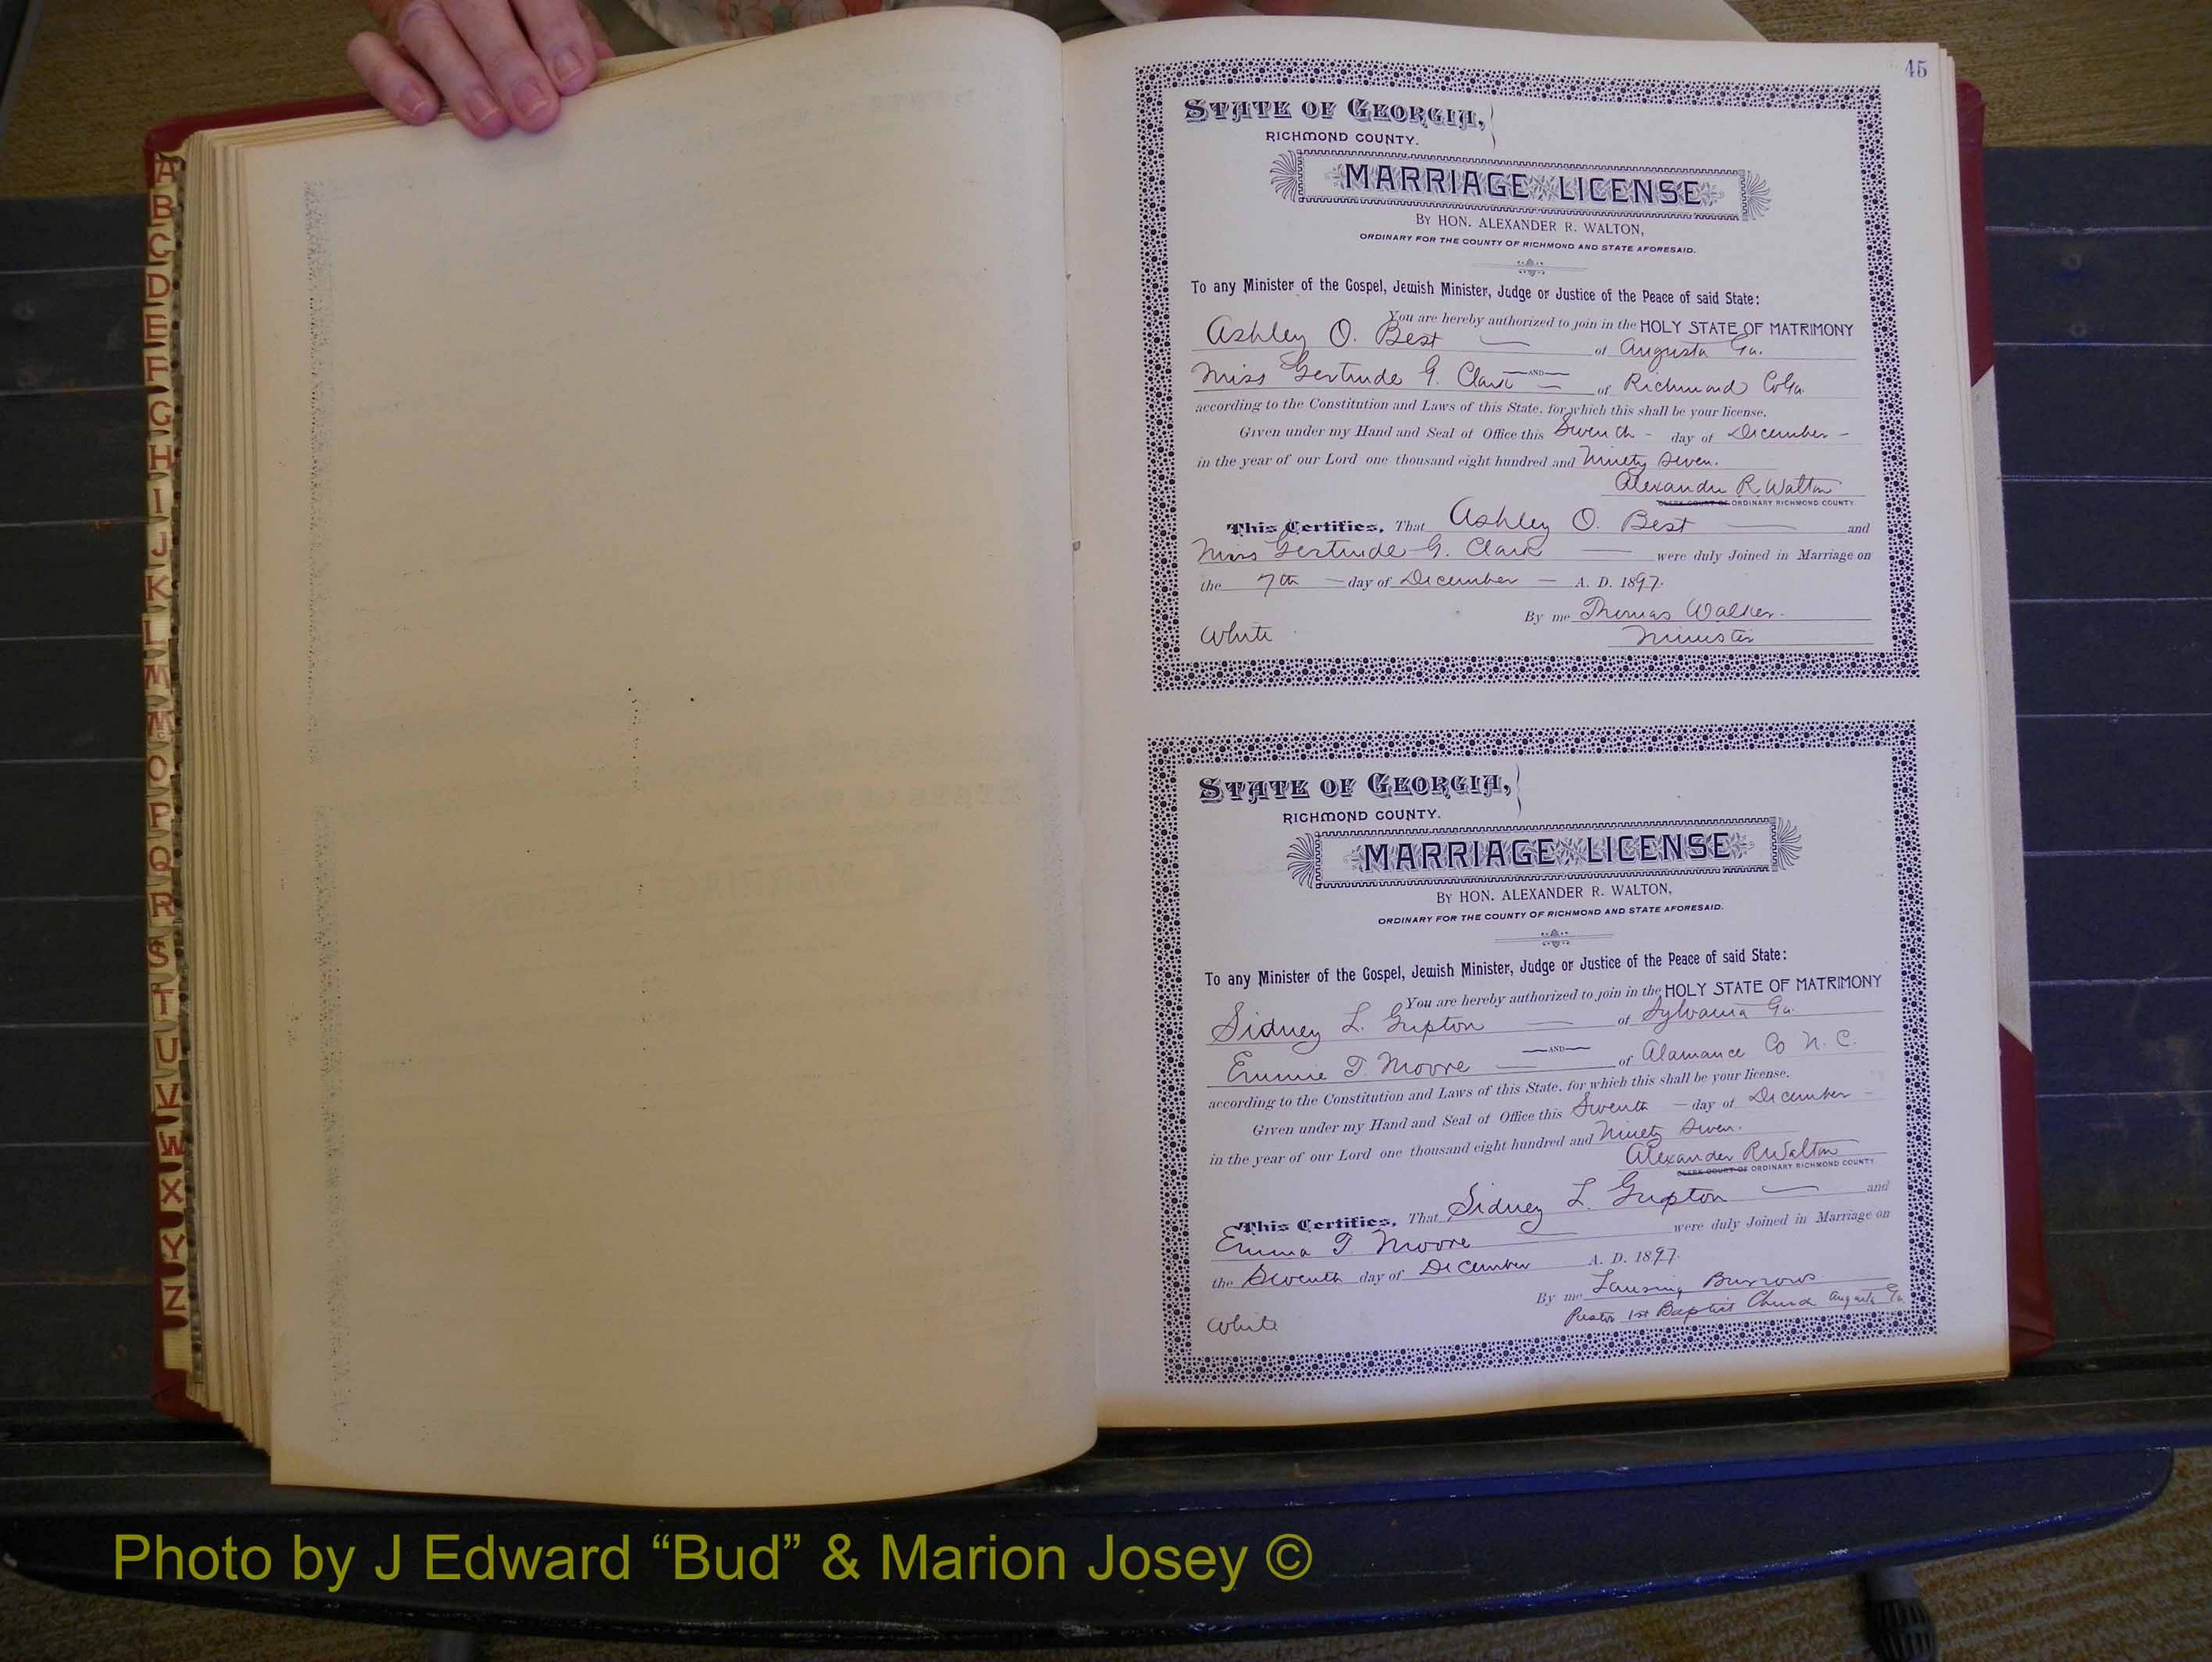 A
B
C
D
E
F
G
H
I
J
K
L
M
Mc
O
P
Q
R
S
T
U
V
W
X
Y
Z
45
STATE OF GEORGIA,
RICHMOND COUNTY.
MARRIAGE LICENSE
BY HON. ALEXANDER R. WALTON,
ORDINARY FOR THE COUNTY OF RICHMOND AND STATE AFORESAID.
To any Minister of the Gospel, Jewish Minister, Judge or Justice of the Peace of said State:
You are hereby authorized to join in the HOLY STATE OF MATRIMONY
Ashley O. Best — of Augusta Ga.
—AND—
Miss Gertrude G. Clark — of Richmond Co Ga.
according to the Constitution and Laws of this State, for which this shall be your license.
Given under my Hand and Seal of Office this Seventh - day of December -
in the year of our Lord one thousand eight hundred and Ninety Seven.
Alexander R. Walton
CLERK COURT OF ORDINARY RICHMOND COUNTY
This Certifies, That Ashley O. Best — and
Miss Gertrude G. Clark — were duly Joined in Marriage on
the 7th — day of December — A. D. 1897.
By me Thomas Walker.
White Minister
STATE OF GEORGIA,
RICHMOND COUNTY.
MARRIAGE LICENSE
BY HON. ALEXANDER R. WALTON,
ORDINARY FOR THE COUNTY OF RICHMOND AND STATE AFORESAID.
To any Minister of the Gospel, Jewish Minister, Judge or Justice of the Peace of said State:
You are hereby authorized to join in the HOLY STATE OF MATRIMONY
Sidney L. Gupton — of Sylvania Ga.
—AND—
Emmie T. Moore — of Alamance Co N. C.
according to the Constitution and Laws of this State, for which this shall be your license.
Given under my Hand and Seal of Office this Seventh — day of December -
in the year of our Lord one thousand eight hundred and Ninety Seven.
Alexander R Walton
CLERK COURT OF ORDINARY RICHMOND COUNTY
This Certifies, That Sidney L. Gupton — and
Emma T. Moore — were duly Joined in Marriage on
the Seventh day of December A. D. 1897.
By me Lansing Burrows.
White Pastor 1st Baptist Church Augusta Ga
Photo by J Edward “Bud” & Marion Josey ©